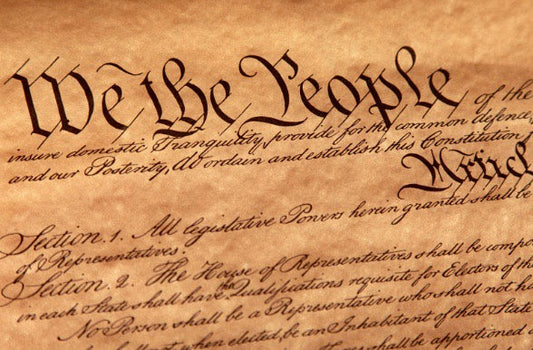 We the People of the
insure domestic Tranquility, provide for the common defence,
and our Posterity, do ordain and establish this Constitution
Articl
Section. 1. All legislative Powers herein granted shall be
of Representatives.
Section. 2. The House of Representatives shall be compo
in each State shall have the Qualifications requisite for Electors of th
No Person shall be a Representative who shall not ha
when elected, be an Inhabitant of that State
shall be apportioned a